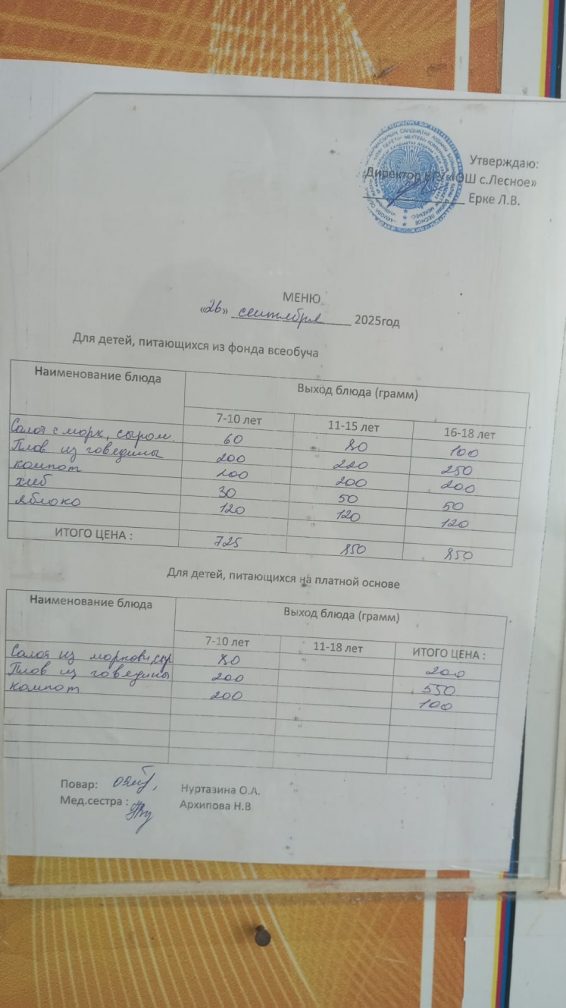 Утверждаю:
Директор КГУ «ОШ с.Лесное»
Ерке Л.В.
МЕНЮ
«26» сентября 2025год
Для детей, питающихся из фонда всеобуча
Наименование блюда Выход блюда (грамм)
7-10 лет 11-15 лет 16-18 лет
Салат с морк, сыром 60 80 100
Плов из говядины 200 220 250
компот 200 200 200
хлеб 30 50 50
яблоко 120 120 120
ИТОГО ЦЕНА : 725 850 850
Для детей, питающихся на платной основе
Наименование блюда Выход блюда (грамм)
7-10 лет 11-18 лет ИТОГО ЦЕНА :
Салат из моркови сыр 80 200
Плов из говядины 200 550
компот 200 100
Повар: Нуртазина О.А.
Мед.сестра : Архипова Н.В